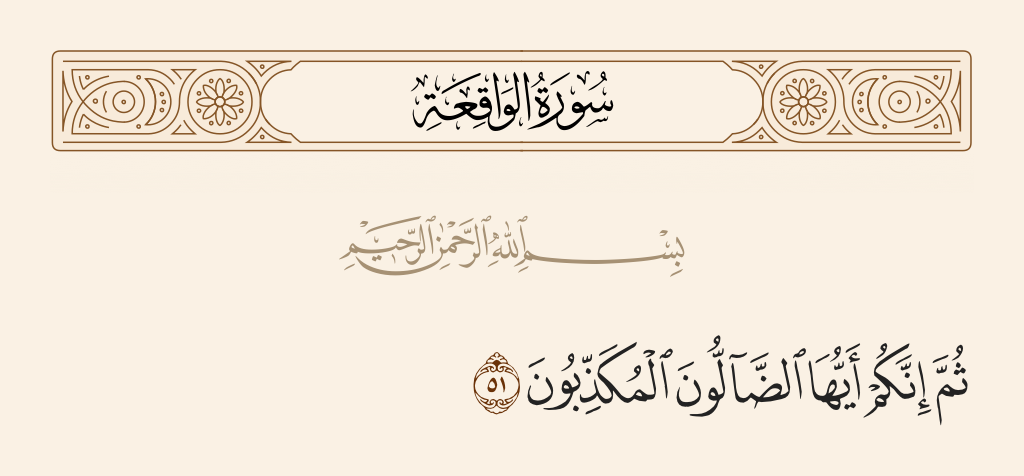 سُورَةُ الوَاقِعَةِ
بِسْمِ ٱللَّهِ ٱلرَّحْمَٰنِ ٱلرَّحِيمِ
ثُمَّ إِنَّكُمْ أَيُّهَا ٱلضَّآلُّونَ ٱلْمُكَذِّبُونَ ٥١